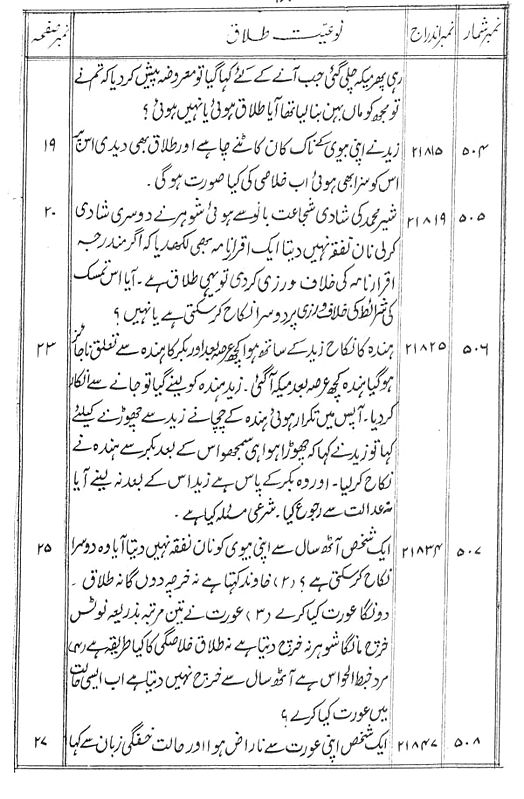 نمبر شمار نمبر اندراج نوعیت طلاق نمبر صفحہ
رہی پھر میکہ چلی گئی جب آنے کے لئے کہا گیا تو معروضہ پیش کر دیا کہ تم نے
تو مجھ کو ماں بہن بنا لیا تھا آیا طلاق ہوئی یا نہیں ہوئی ؟
۵۰۴ ۲۱۸۱۵ زید نے اپنی بیوی کے ناک کان کاٹنے چاہے اور طلاق بھی دیدی اس پر ۱۹
اس کو سزا بھی ہوئی اب خلاصی کی کیا صورت ہوگی ۔
۵۰۵ ۲۱۸۱۹ شیر محمد کی شادی شجاعت بانو سے ہوئی شوہر نے دوسری شادی ۲۰
کر لی نان نفقہ نہیں دیتا ایک اقرار نامہ بھی لکھ دیا کہ اگر مندرجہ
اقرار نامہ کی خلاف ورزی کر دی تو یہی طلاق ہے ۔ آیا اس تمسک
کی شرائط کی خلاف ورزی پر دوسرا نکاح کر سکتی ہے یا نہیں ؟
۵۰۶ ۲۱۸۲۵ ہندہ کا نکاح زید کے ساتھ ہوا کچھ عرصہ بعد اور بکر کا ہندہ سے تعلق ناجائز ۲۳
ہو گیا ہندہ کچھ عرصہ بعد میکہ آ گئی ۔ زید ہندہ کو لینے گیا تو جانے سے انکار
کر دیا ۔ آپس میں تکرار ہوئی ہندہ کے چچا نے زید سے چھوڑنے کیلئے
کہا تو زید نے کہا کہ چھوڑا ہوا ہی سمجھو اس کے بعد بکر سے ہندہ نے
نکاح کر لیا ۔ اور وہ بکر کے پاس ہے زید اس کے بعد نہ لینے آیا
نہ عدالت سے رجوع کیا ۔ شرعی مسئلہ کیا ہے ۔
۵۰۷ ۲۱۸۳۴ ایک شخص آٹھ سال سے اپنی بیوی کو نان نفقہ نہیں دیتا آیا وہ دوسرا ۲۵
نکاح کر سکتی ہے ؟ (۲) خاوند کہتا ہے نہ خرچہ دوں گا نہ طلاق ۔
دونگا عورت کیا کرے (۳) عورت نے تین مرتبہ بذریعہ نوٹس
خرچ مانگا شوہر نہ خرچ دیتا ہے نہ طلاق خلاصگی کا کیا طریقہ ہے (۴)
مرد خبط الحواس ہے آٹھ سال سے خرچ نہیں دیتا ہے اب ایسی حالت
میں عورت کیا کرے ؟
۵۰۸ ۲۱۸۴۷ ایک شخص اپنی عورت سے ناراض ہوا اور حالت خفگی زبان سے کہا ۲۷